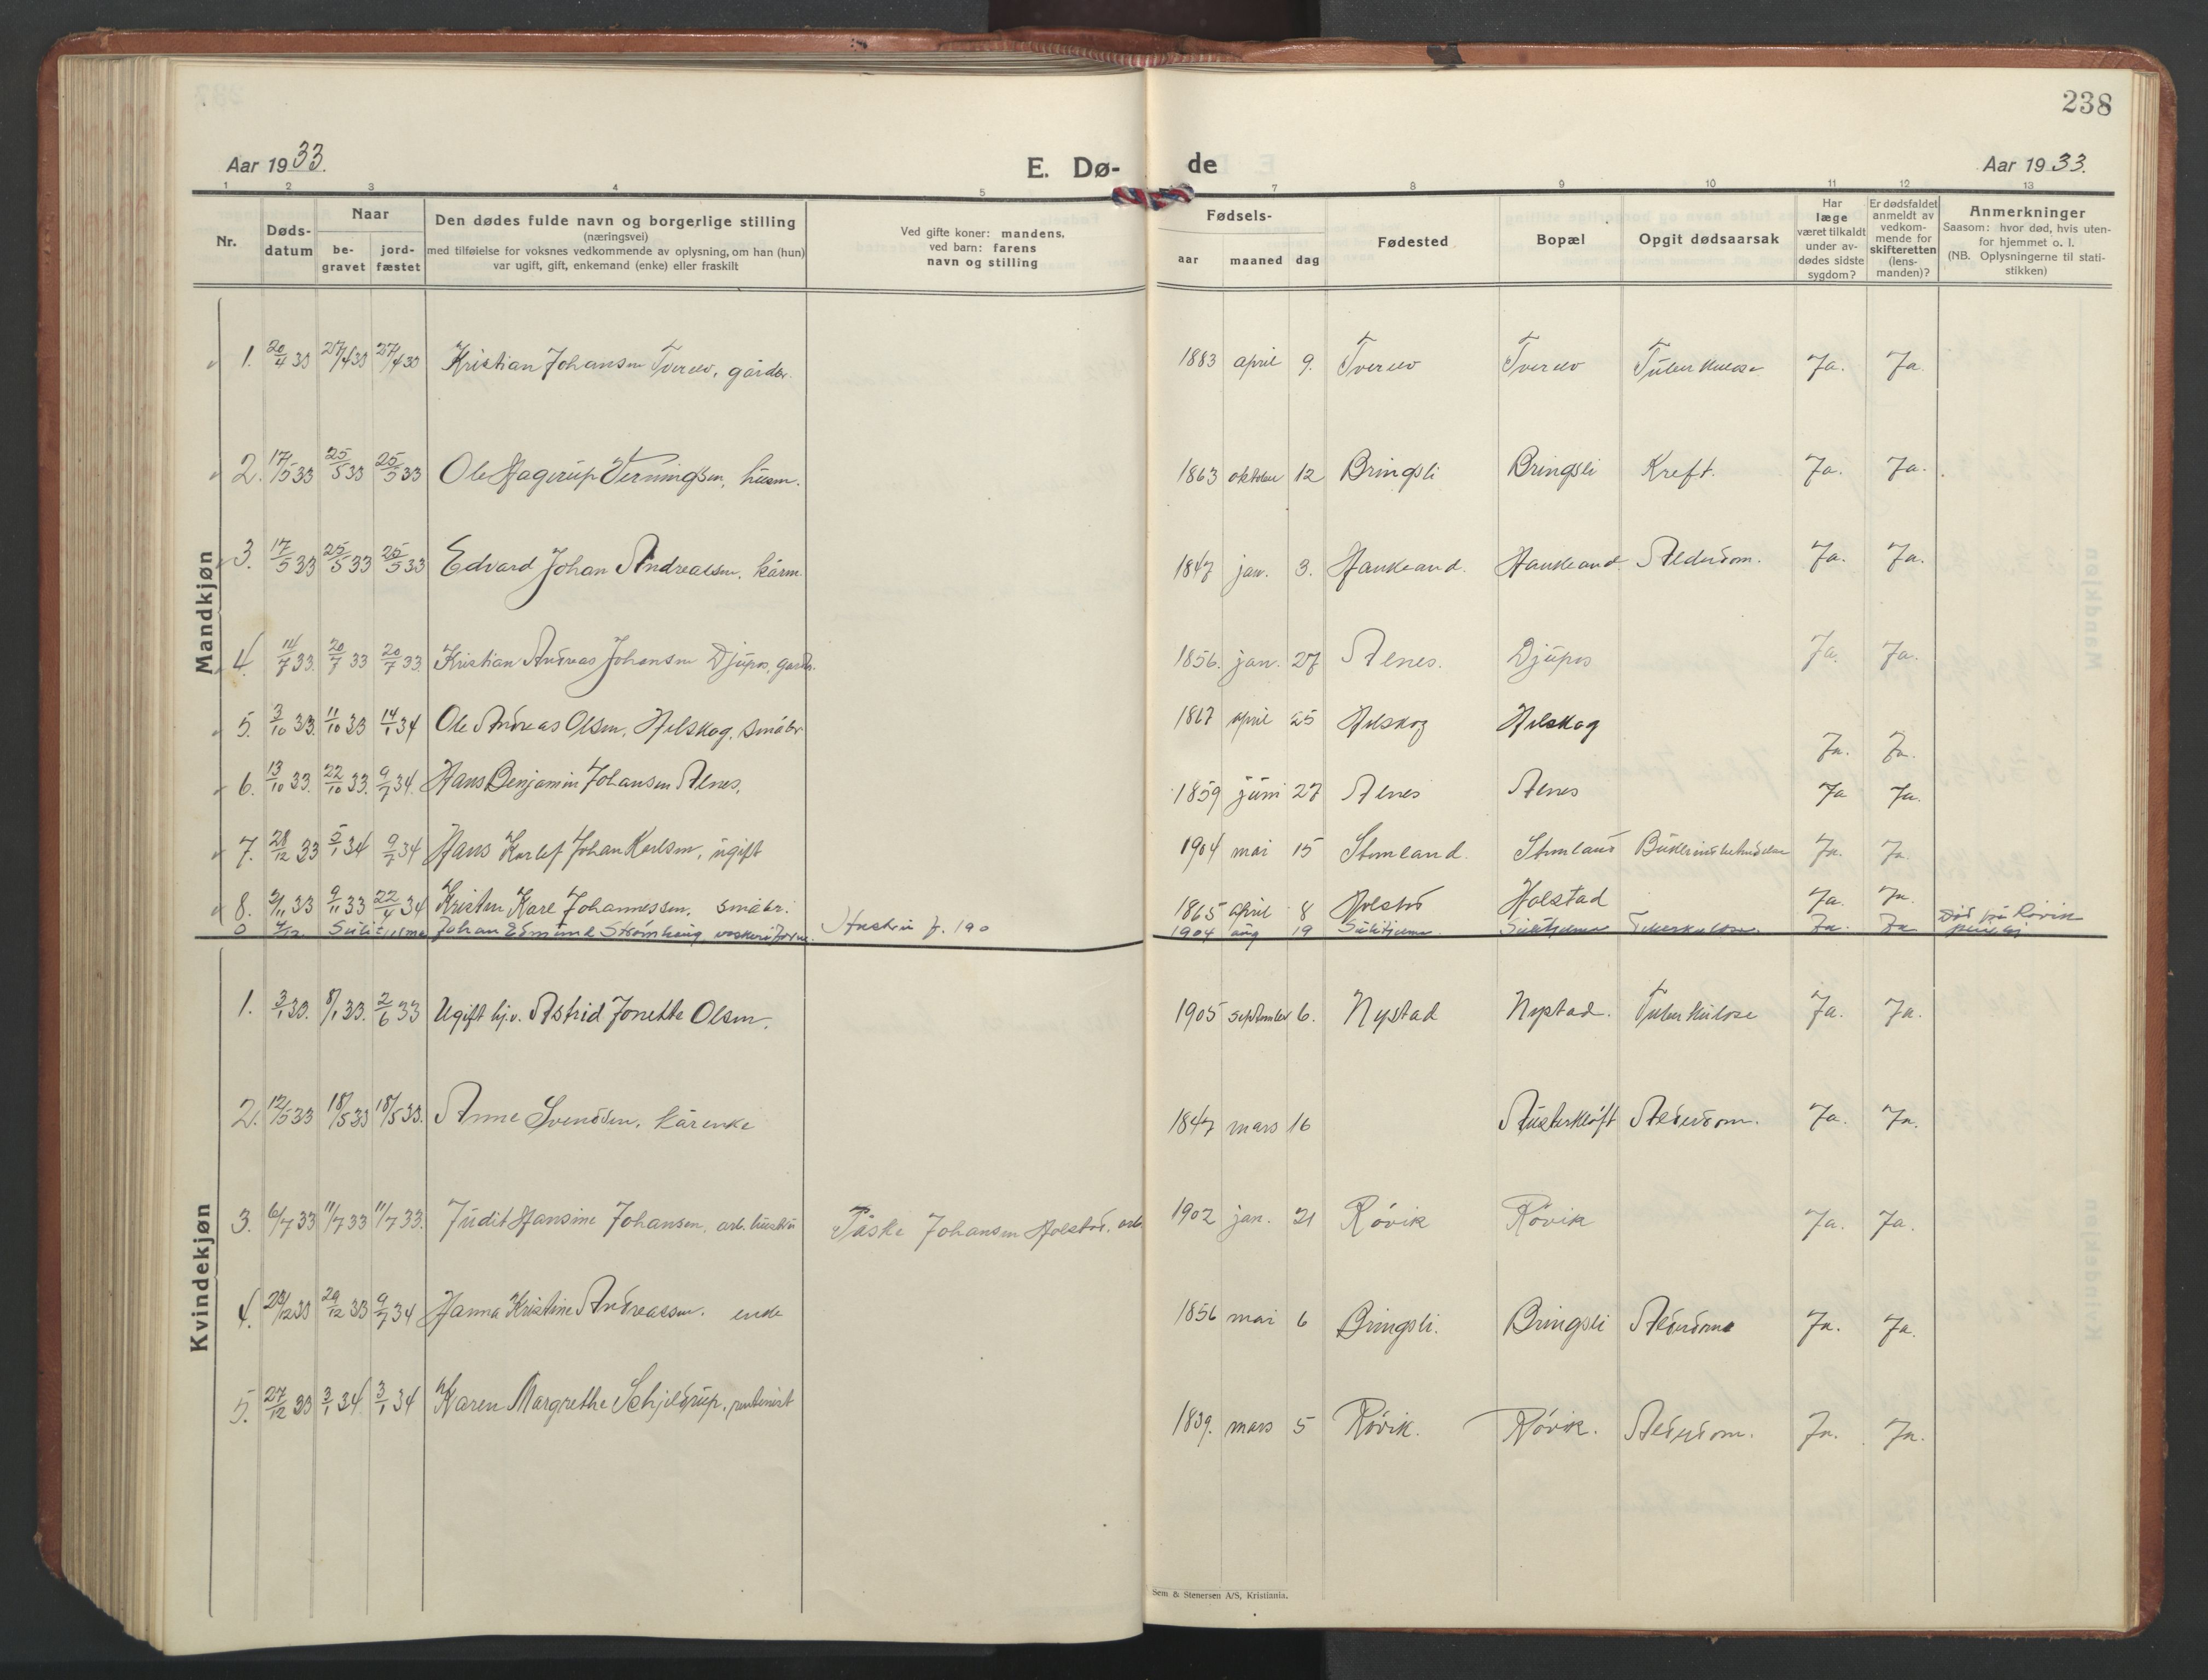 238
Aar 1933. E. Dø- de Aar 1933.
1 2 3 4 5 7 8 9 10 11 12 13
Nr.
Døds-
datum
Naar
be-
gravet
jord-
fæstet
Den dødes fulde navn og borgerlige stilling
(næringsvei)
med tilføielse for voksnes vedkommende av oplysning, om han (hun)
var ugift, gift, enkemand (enke) eller fraskilt
Ved gifte koner: mandens,
ved barn: farens
navn og stilling
Fødsels-
aar maaned dag
Fødested
Bopæl
Opgit dødsaarsak
Har
læge
været tilkaldt
under av-
dødes sidste
sygdom?
Er dødsfaldet
anmeldt av
vedkom-
mende for
skifteretten
(lens-
manden)?
Anmerkninger
Saasom: hvor død, hvis uten-
for hjemmet o. l.
(NB. Oplysningerne til stati-
stikken)
Mandkjøn
1. 20/4 33 27/4 33 27/4 33 Kristian Johansen Tverelv, gårdbr. 1883 april 9. Tverelv Tverelv Tuberkulose Ja. Ja.
2. 17/5 33 25/5 33 25/5 33 Ole Hagerup Verningsen, husm. 1863 oktober 12 Bringsli Bringsli Kreft. Ja. Ja.
3. 17/5 33 25/5 33 25/5 33 Edvard Johan Andreassen, kårm. 1847 jan. 3. Haukeand. Haukeand Alderdom. Ja. Ja.
4. 14/7 33. 20/7 33 20/7 33. Kristian Andreas Johansen Djupos, gardbr. 1856. jan. 27 Alnes. Djupos Ja. Ja.
5. 3/10 33. 11/10 33 14/1 34 Ole Andreas Olsen, Helskog, småbr 1867 april 25 Helskog Helskog Ja. Ja.
6. 13/10 33. 22/10 33. 9/7 34. Hans Benjamin Johansen Alnes. 1859 juni 27 Alnes Alnes Ja Ja.
7. 28/12 33 5/1 34 9/7 34 Hans Karlof Johan Karlsen, ugift 1904 mai 15 Stemland. Stemland Ja. Ja.
8. 2/11 33 9/11 33 22/4 34 Kristen Karl Johannessen, småbr. 1865 april 8 Holstad Holstad Ja. Ja.
Sulitjelma Johan Edmund Strømhaug, 1904 aug 19 Sulitjelma Sulitjelma Tuberkulose Ja. Ja Død på Røvik pleiehj
Kvindekjøn
1. 3/1 33. 8/1 33. 2/6 33 Ugift hj.v. Astrid Jonette Olsen. 1905 september 6. Nystad Nystad. Tuberkulose Ja. Ja.
2. 12/5 33 18/5 33 18/5 33. Anne Svendsen, kårenke 1847 mars 16 Austerkløft Alderdom. Ja. Ja.
3. 6/7 33 11/7 33 11/7 33. Judit Hansine Johansen, arb. hustru Påske Johansen Holstad, arb 1902 jan. 21 Røvik Røvik Ja. Ja.
4. 23/12 33 29/12 33 9/7 34 Hanna Kristine Andreassen. enke 1856 mai 6 Bringsli. Bringsli Alderdom Ja. Ja.
5. 27/12 33 3/1 34 3/1 34 Karen Margrethe Schjeldrup, pensionist 1839. mars 5 Røvik. Røvik. Alderdom. Ja. Ja.
Sem & Stenersen A/S, Kristiania.